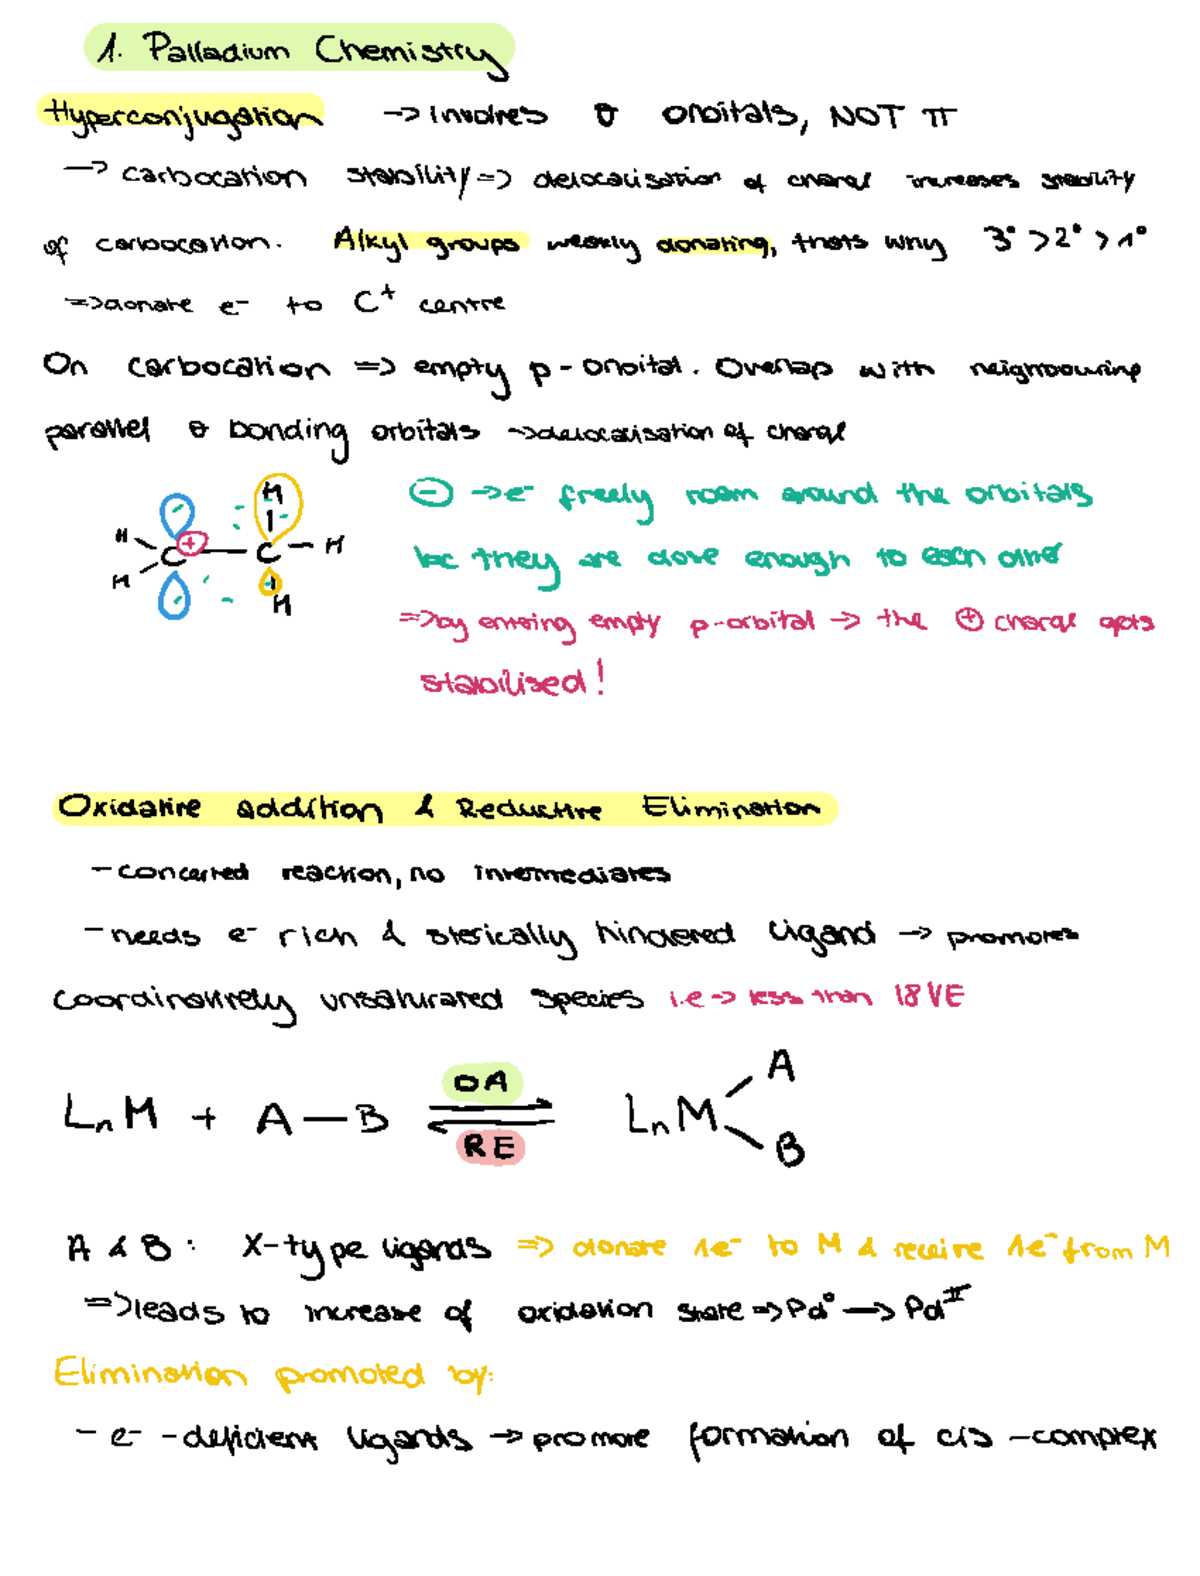 1. Palladium Chemistry
Hyperconjugation -> involves σ orbitals, NOT π
-> carbocation stability => delocalisation of charge increases stability
of carbocation. Alkyl groups weakly donating, thats why 3° > 2° > 1°
=> donate e⁻ to C⁺ centre
On carbocation => empty p-orbital. Overlap with neighbouring
parallel σ bonding orbitals -> delocalisation of charge
H
H C + C H
H
H
⊖ -> e⁻ freely roam around the orbitals
bc they are close enough to each other
=> by entering empty p-orbital -> the ⊕ charge gets
stabilised!
Oxidative addition & Reductive Elimination
- concerted reaction, no intermediates
- needs e⁻ rich & sterically hindered ligand -> promotes
coordinatively unsaturated species i.e -> less than 18 VE
LₙM + A—B OA RE LₙM A B
A & B: X-type ligands => donate 1e⁻ to M & receive 1e⁻ from M
=> leads to increase of oxidation state => Pd⁰ -> Pdᴵᴵ
Elimination promoted by:
- e⁻ -deficient ligands -> promote formation of cis-complex